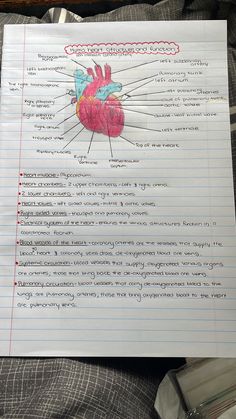 Human heart structures and functions
Brachiocephalic
vein
Left subclavian
artery
Left brachiocephalic
vein
Pulmonary trunk
Left atrium
The right brachiocephalic
vein
Left pulmonary
arteries
Right pulmonary
arteries
cusp of pulmonary
valve
Right pulmonary
veins
Right atrium
Left ventricle
tricuspid
valve
Papillary muscles
Top of the heart
Right
Ventricle
Interventricular
Septum
• Heart muscle - Myocardium
• Heart chambers - 2 upper chambers - Left & right atria.
• 2 lower chambers - left and right ventricles.
• Heart valves - left sided valves - mitral & aortic valves
• Right sided valves - tricuspid and pulmonary valves.
• Electrical system of the heart - ensures the various structures function in a
coordinated
• Blood vessels of the heart - coronary arteries are the vessels that supply the
heart & coronary veins drain de-oxygenated blood are veins.
• Systemic circulation - blood vessels that supply oxygenated various organs
are arteries, those that bring back the de-oxygenated blood are veins.
• Pulmonary circulation - blood vessels that carry de-oxygenated blood to the
lungs are pulmonary arteries, those that bring oxygenated blood to the heart
are pulmonary veins.